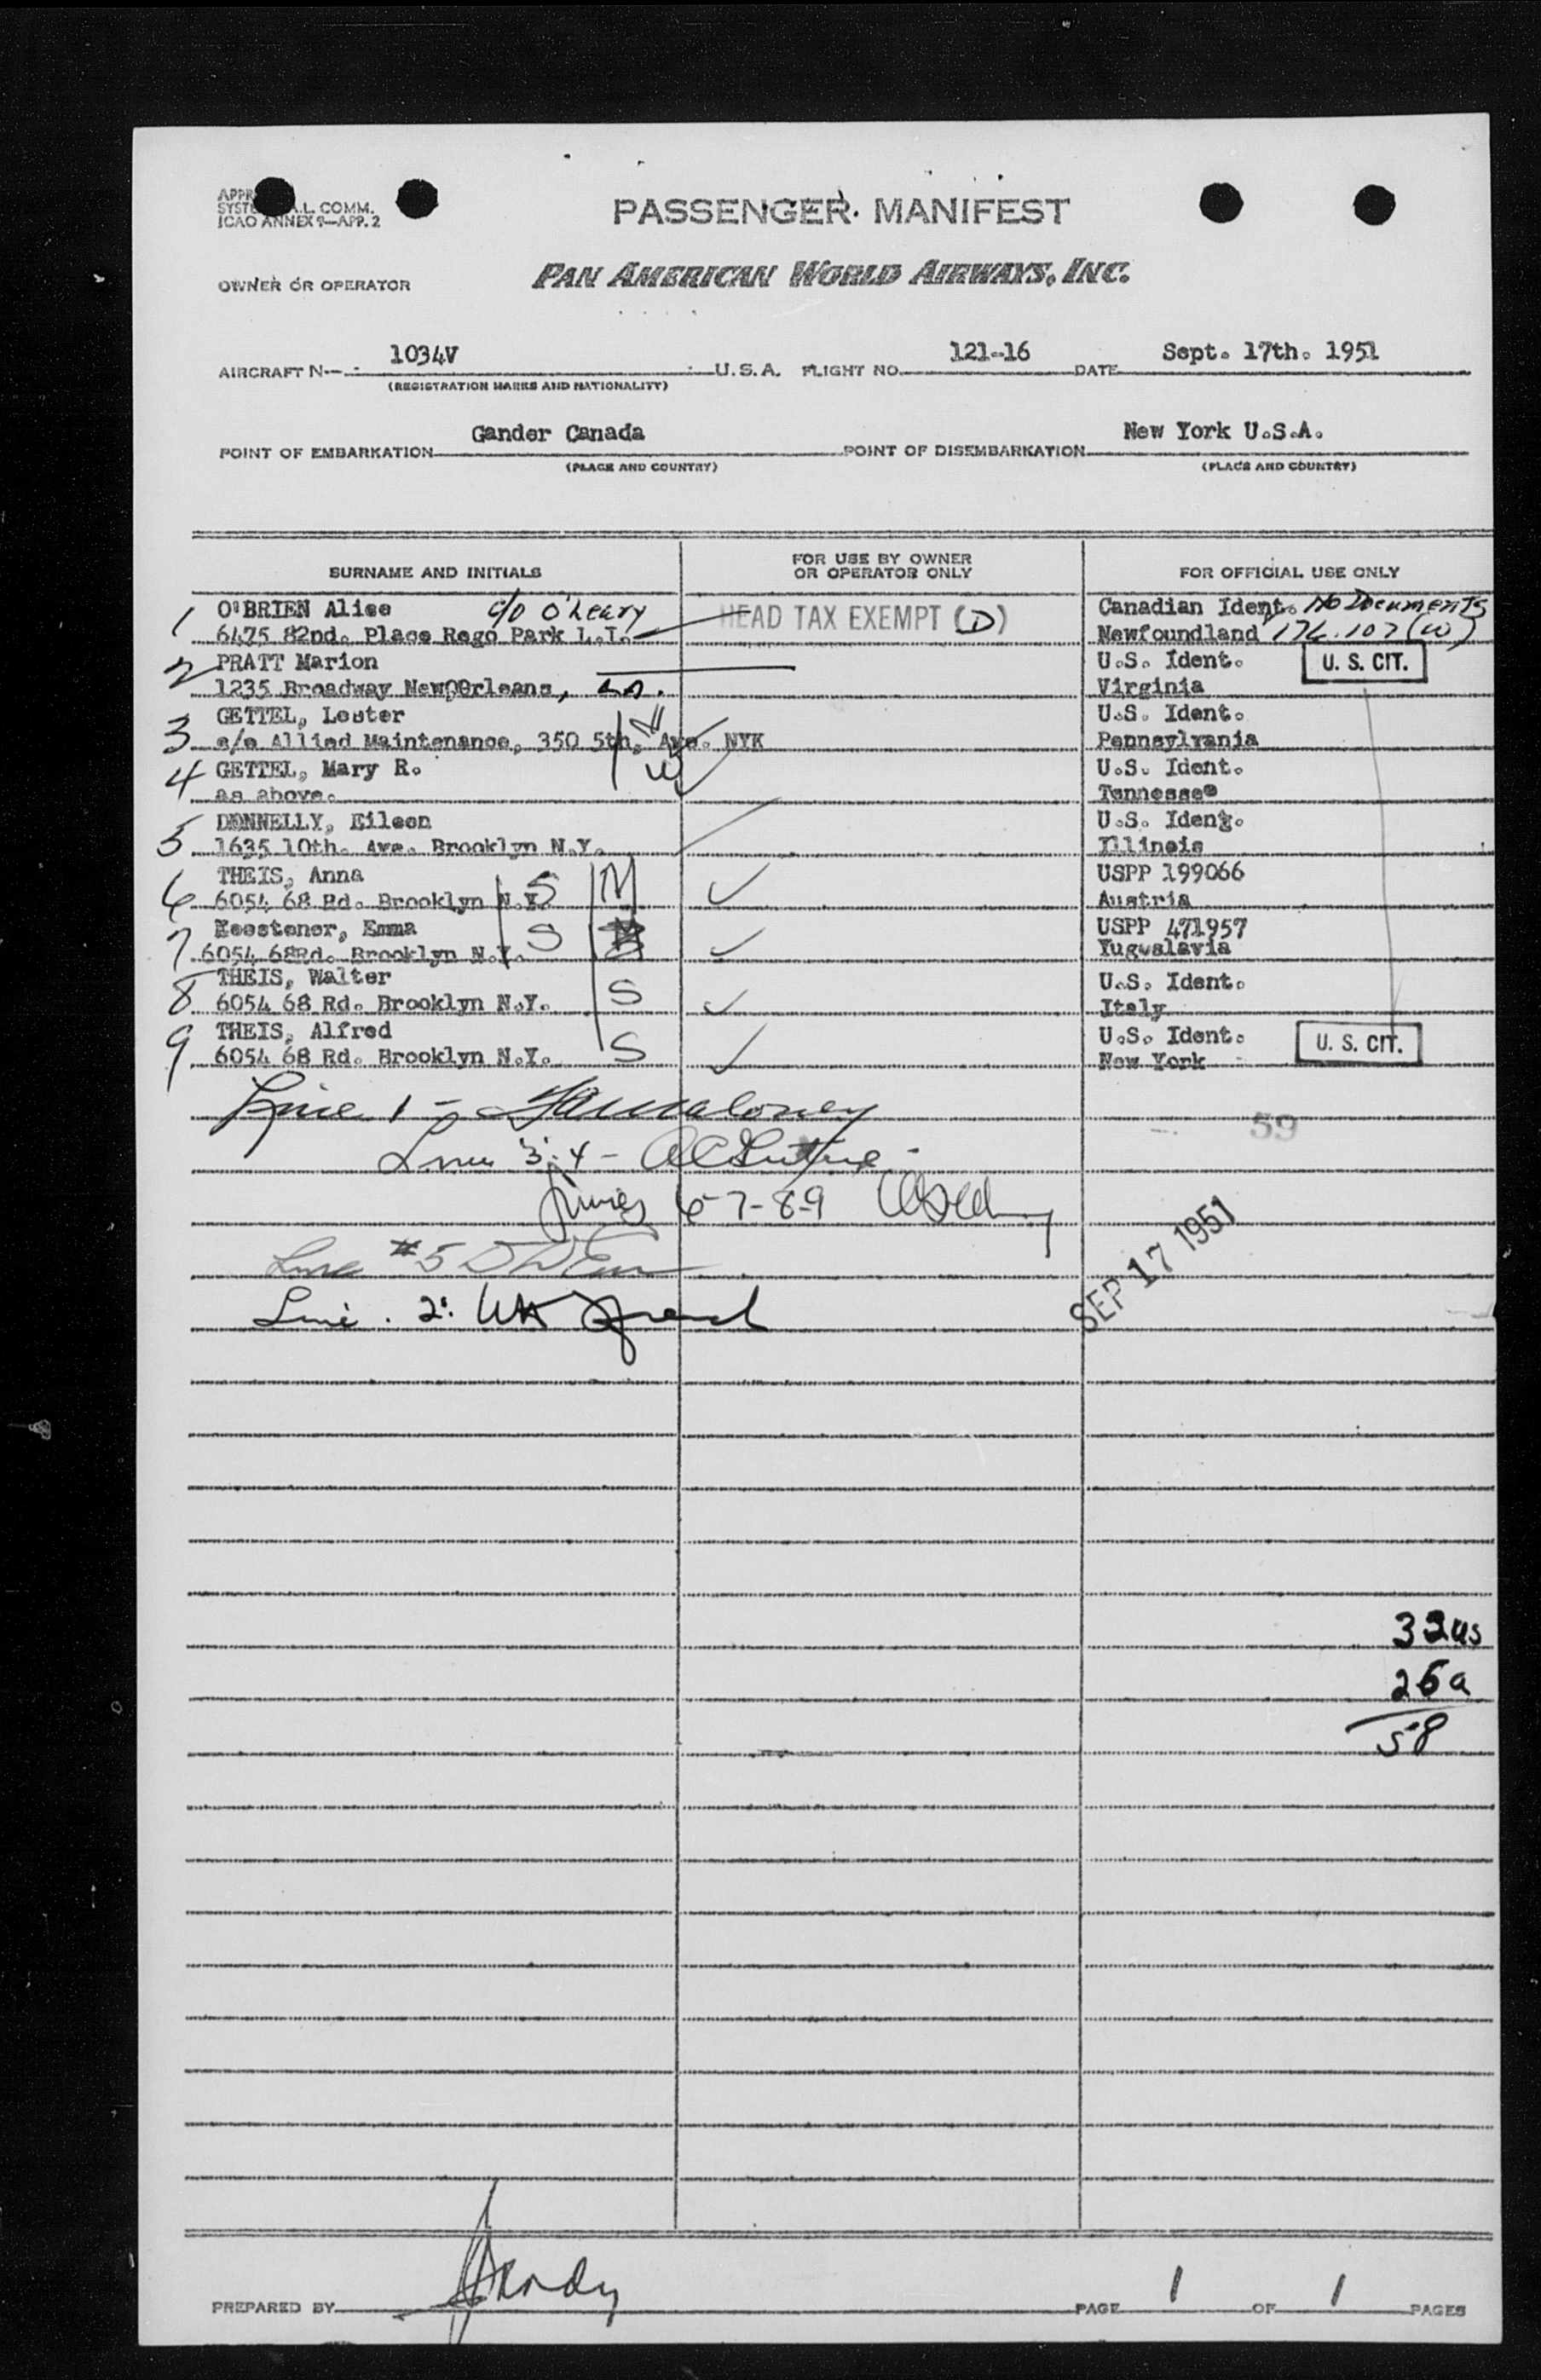 PASSENGER MANIFEST
ICAO ANNEX 9—APP. 2
OWNER OR OPERATOR
PAN AMERICAN WORLD AIRWAYS, INC.
AIRCRAFT N-- 1034V U.S.A. FLIGHT NO. 121-16 DATE Sept. 17th. 1951
(REGISTRATION MARKS AND NATIONALITY)
POINT OF EMBARKATION Gander Canada POINT OF DISEMBARKATION New York U.S.A.
(PLACE AND COUNTRY) (PLACE AND COUNTRY)
SURNAME AND INITIALS FOR USE BY OWNER OR OPERATOR ONLY FOR OFFICIAL USE ONLY
1 O'BRIEN Alice c/o O'Leary HEAD TAX EXEMPT (D) Canadian Ident. No Documents
6475 82nd. Place Rego Park L.I. Newfoundland 176.107(w)
2 PRATT Marion U.S. Ident. U. S. CIT.
1235 Broadway New Orleans, La. Virginia
3 GETTEL, Lester U.S. Ident.
c/o Allied Maintenance, 350 5th. Ave. NYK Pennsylvania
4 GETTEL, Mary R. U.S. Ident.
as above. Tennessee
5 DONNELLY, Eileen U.S. Ident.
1635 10th. Ave. Brooklyn N.Y. Illinois
6 THEIS, Anna S M USPP 199066
6054 68 Rd. Brooklyn N.Y. Austria
7 Emma S USPP 471957
6054 68Rd. Brooklyn N.Y. Yugoslavia
8 THEIS, Walter U.S. Ident.
6054 68 Rd. Brooklyn N.Y. S Italy
9 THEIS, Alfred U.S. Ident. U. S. CIT.
6054 68 Rd. Brooklyn N.Y. S New York
Line 1 - Maloney
59
Line 3-4 -
Lines 6-7-8-9
Line #5
SEP 17 1951
Line 2.
32us
26a
58
PREPARED BY PAGE 1 OF 1 PAGES